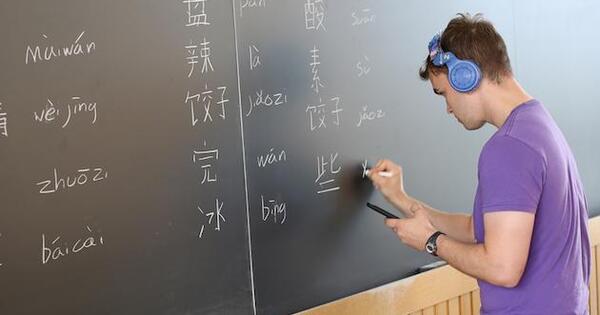 酸 suān
Màiwán 辣 là 素 sù
wèijīng 饺子 jiǎozi 饺子 jiǎozi
zhuōzi 完 wán 些
báicài 冰 bīng